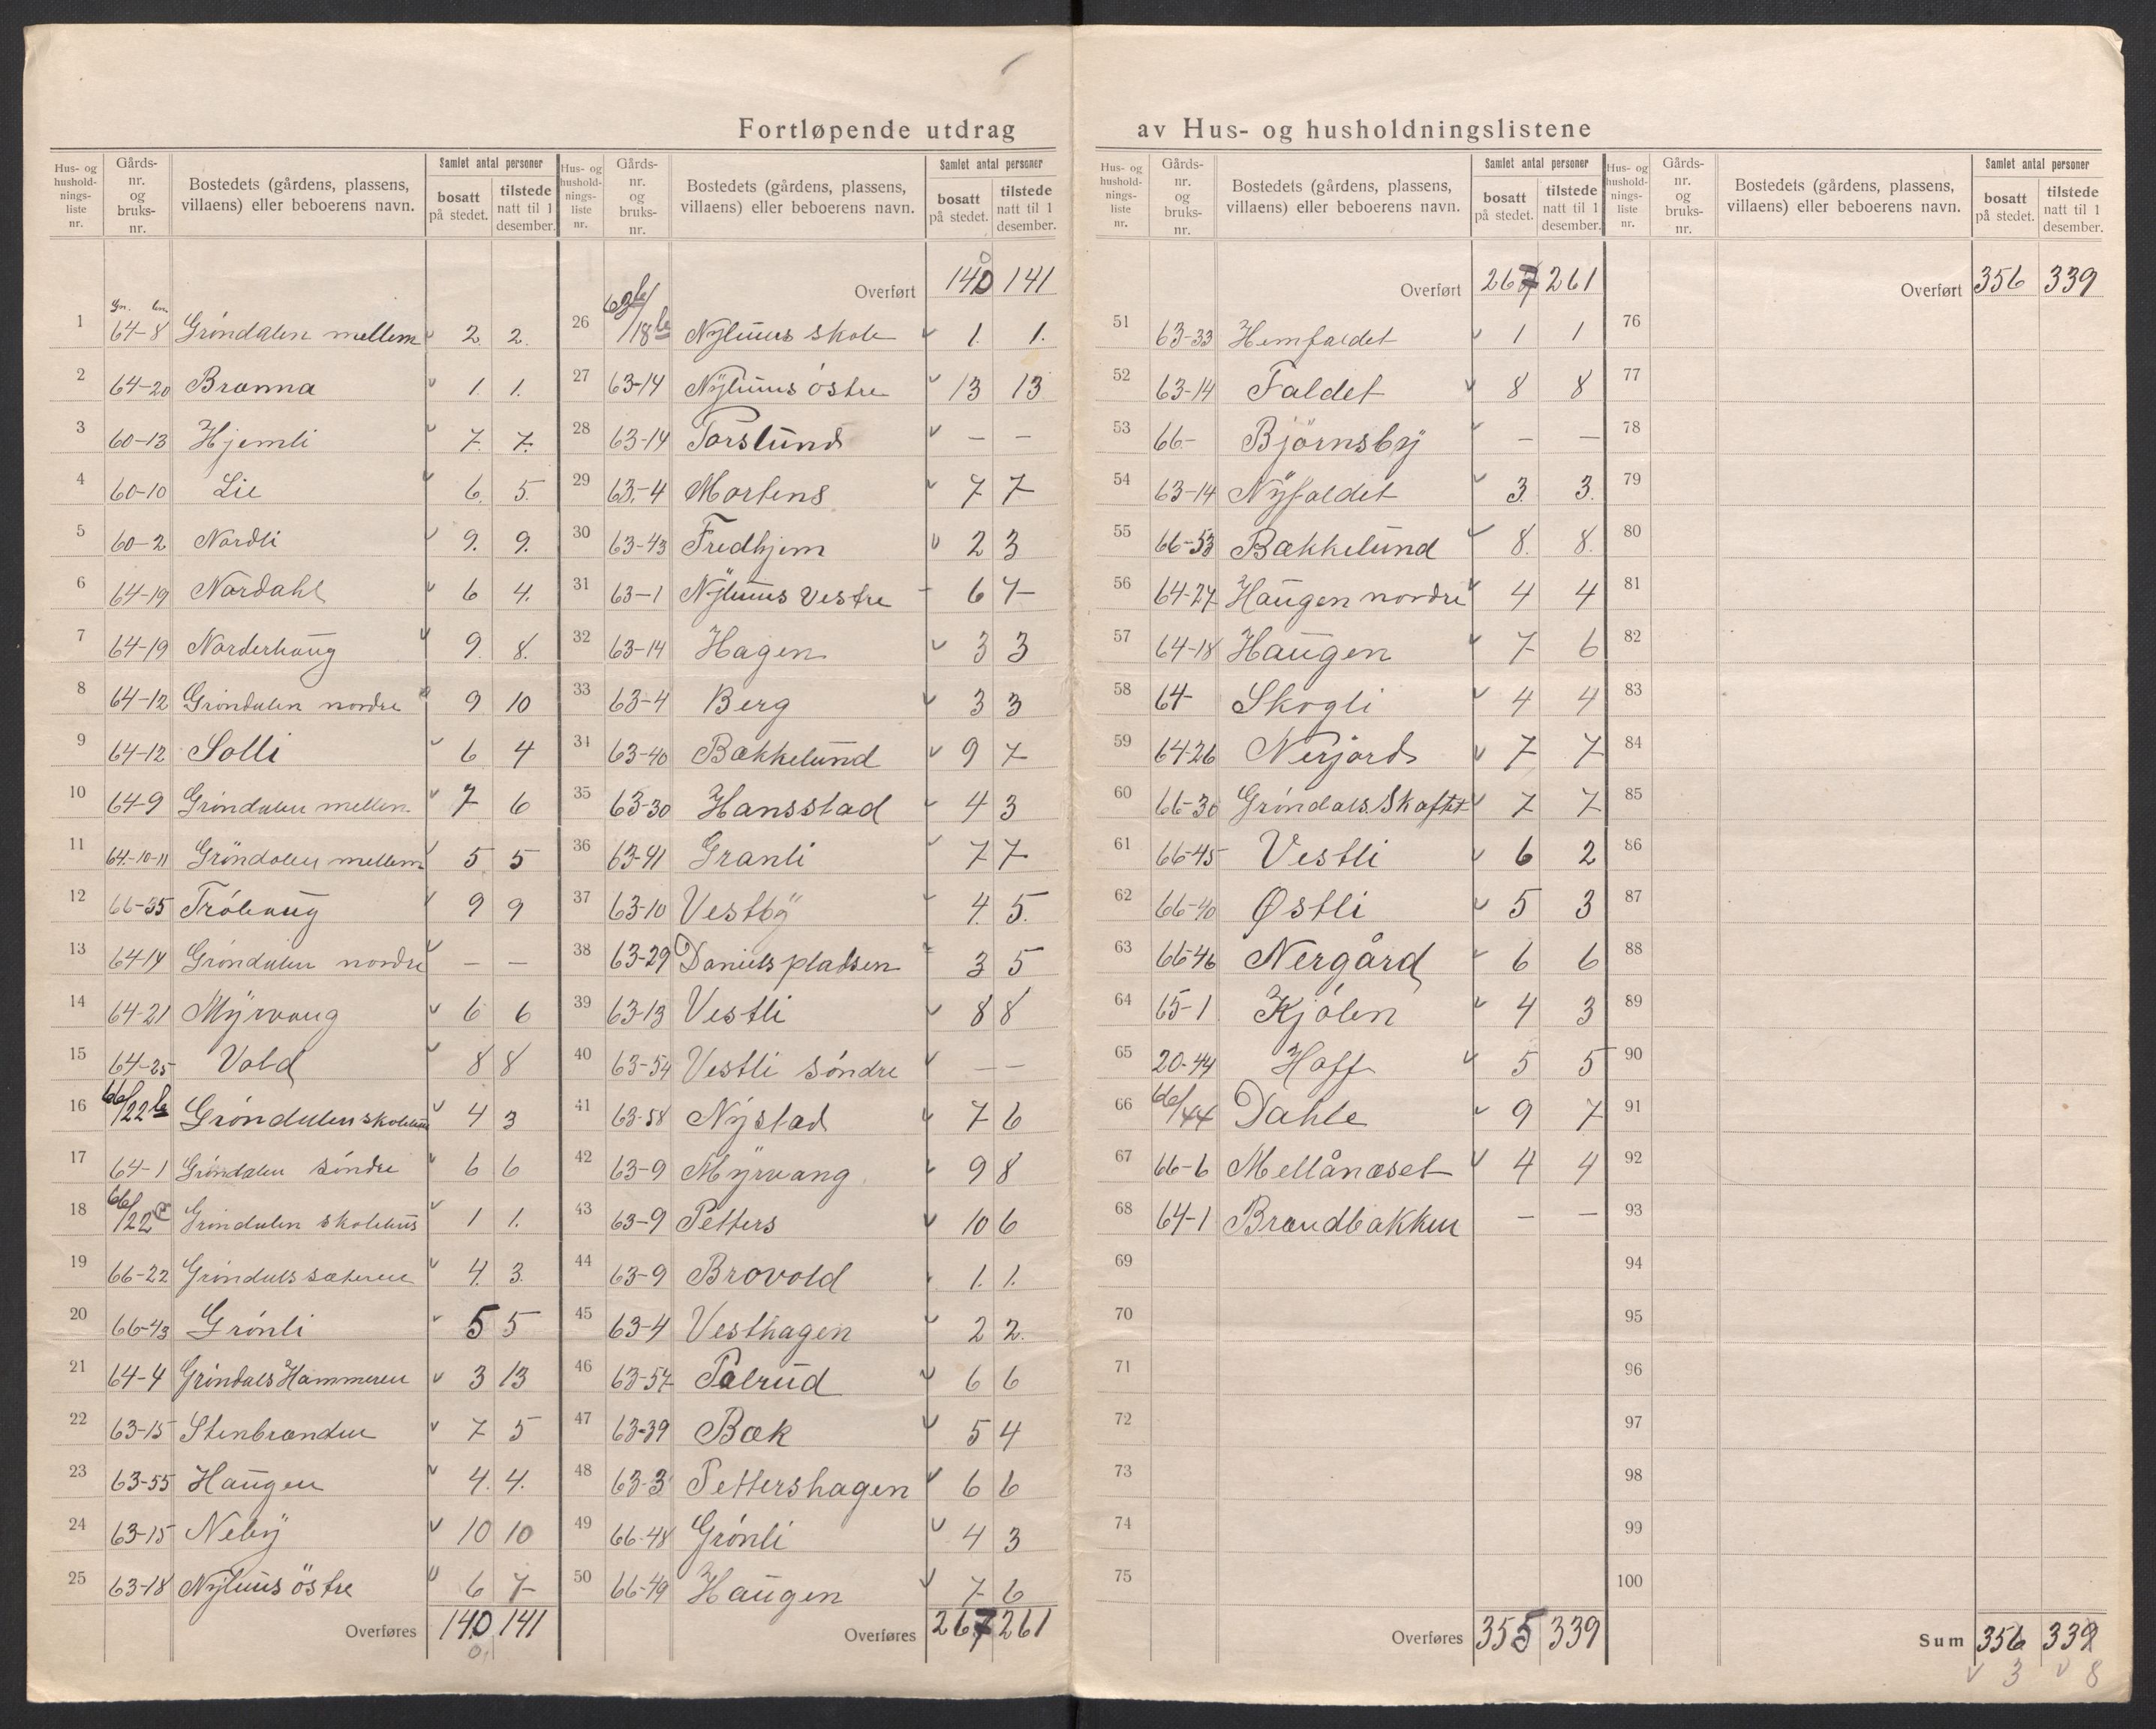 Fortløpende utdrag av Hus- og husholdningslistene
Hus- og husholdnings-liste nr. | Gårds-nr. og bruks-nr. | Bostedets (gårdens, plassens, villaens) eller beboerens navn. | Samlet antal personer | bosatt på stedet. | tilstede natt til 1 desember.
Gn. bn.
1 64-8 Gröndalen mellem 2. 2.
2 64-20 Brænna 1. 1.
3 60-13 Hjemli 7. 7.
4 60-10 Lie 6. 5.
5 60-2 Nordli 9. 9.
6 64-19 Nordahl 6 4.
7 64-19 Norderhaug 9. 8.
8 64-12 Gröndalen nordre 9 10
9 64-12 Solli 6 4
10 64-9 Gröndalen mellem 7 6
11 64-10-11 Gröndalen mellem 5 5
12 66-35 Tröhaug 9 9
13 64-14 Gröndalen nordre — —
14 64-21 Myrvang 6 6
15 64-25 Vold 8 8
16 66/22 b Gröndalen 4 3
17 64-1 Gröndalen söndre 6 6
18 66/22 Gröndalen skolehus 1 1.
19 66-22 Gröndalssæteren 4. 3.
20 66-43 Grönli 5 5
21 64-4 Gröndals Hammeren 3 13
22 63-15 Stenbrænden 7 5
23 63-55 Haugen 4. 4.
24 63-15 Neby 10 10
25 63-18 Nyhuus östre 6 7
Overføres 140 141
Hus- og husholdnings-liste nr. | Gårds-nr. og bruks-nr. | Bostedets (gårdens, plassens, villaens) eller beboerens navn. | Samlet antal personer | bosatt på stedet. | tilstede natt til 1 desember.
Overført 140 141
26 /18 b Nyhuus skole 1. 1.
27 63-14 Nyhuus östre 13 13
28 63-14 Torslund — —
29 63-4 Mortens 7 7
30 63-43 Fredhjem 2 3
31 63-1 Nyhuus Vestre 6 7
32 63-14 Hagen 3 3
33 63-4 Berg 3 3
34 63-40 Bækkelund 9 7
35 63-30 Hansstad 4 3
36 63-41 Granli 7 7
37 63-10 Vestby 4. 5.
38 63-29 Danielspladsen 3 5
39 63-13 Vestli 8 8
40 63-54 Vestli söndre — —
41 63-58 Nystad 7 6
42 63-9 Myrvang 9 8
43 63-9 Petters 10 6
44 63-9 Brovold 1. 1.
45 63-4 Vesthagen 2 2.
46 63-57 Palrud 6 6
47 63-39 Bæk 5 4
48 63-3 Pettershagen 6 6
49 66-48 Grönli 4 3
50 66-49 Haugen 7 6
Overføres 267 261
Hus- og husholdnings-liste nr. | Gårds-nr. og bruks-nr. | Bostedets (gårdens, plassens, villaens) eller beboerens navn. | Samlet antal personer | bosatt på stedet. | tilstede natt til 1 desember.
Overført 267 261
51 63-33 Hemfaldet 1 1
52 63-14 Faldet 8 8
53 66- Björnsby — —
54 63-14 Nyfaldet 3. 3.
55 66-53 Bækkelund 8. 8.
56 64-27 Haugen nordre 4 4
57 64-18 Haugen 7 6
58 64- Skogli 4 4
59 64-26 Nerjord 7 7
60 66-30 Gröndals Skaftet 7 7
61 66-45 Vestli 6 2
62 66-40 Østli 5 3
63 66-46 Nergård 6 6
64 65-1 Kjölen 4 3
65 20-44 Hoff 5 5
66 66/44 Dahle 9 7
67 66-6 Mellånæset 4 4
68 64-1 Brændbakken — —
69
70
71
72
73
74
75
Overføres 355 339
Hus- og husholdnings-liste nr. | Gårds-nr. og bruks-nr. | Bostedets (gårdens, plassens, villaens) eller beboerens navn. | Samlet antal personer | bosatt på stedet. | tilstede natt til 1 desember.
Overført 356 339
76
77
78
79
80
81
82
83
84
85
86
87
88
89
90
91
92
93
94
95
96
97
98
99
100
Sum 356 339
3 8